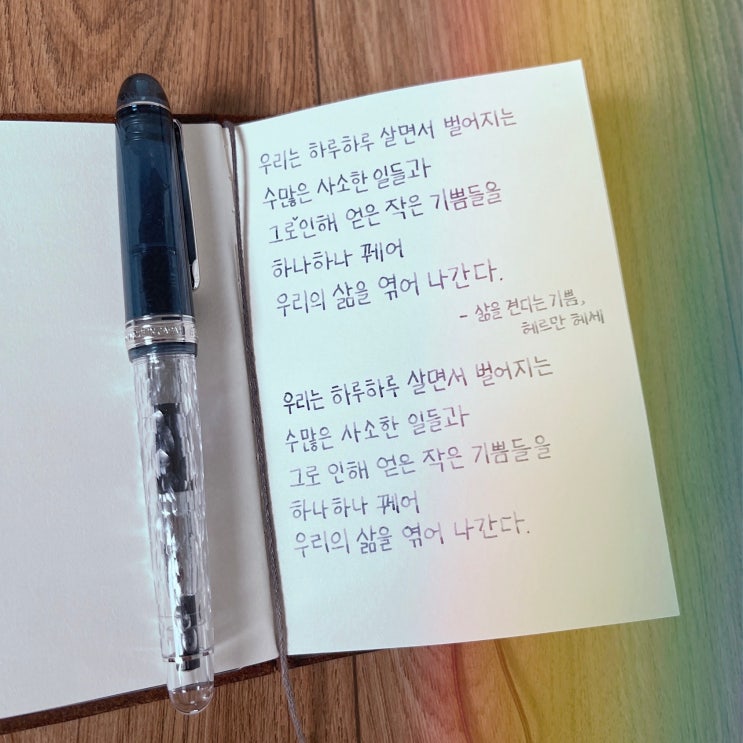 우리는 하루하루 살면서 벌어지는
수많은 사소한 일들과
그로 인해 얻은 작은 기쁨들을
하나하나 꿰어
우리의 삶을 엮어 나간다.
- 삶을 견디는 기쁨,
헤르만 헤세
우리는 하루하루 살면서 벌어지는
수많은 사소한 일들과
그로 인해 얻은 작은 기쁨들을
하나하나 꿰어
우리의 삶을 엮어 나간다.